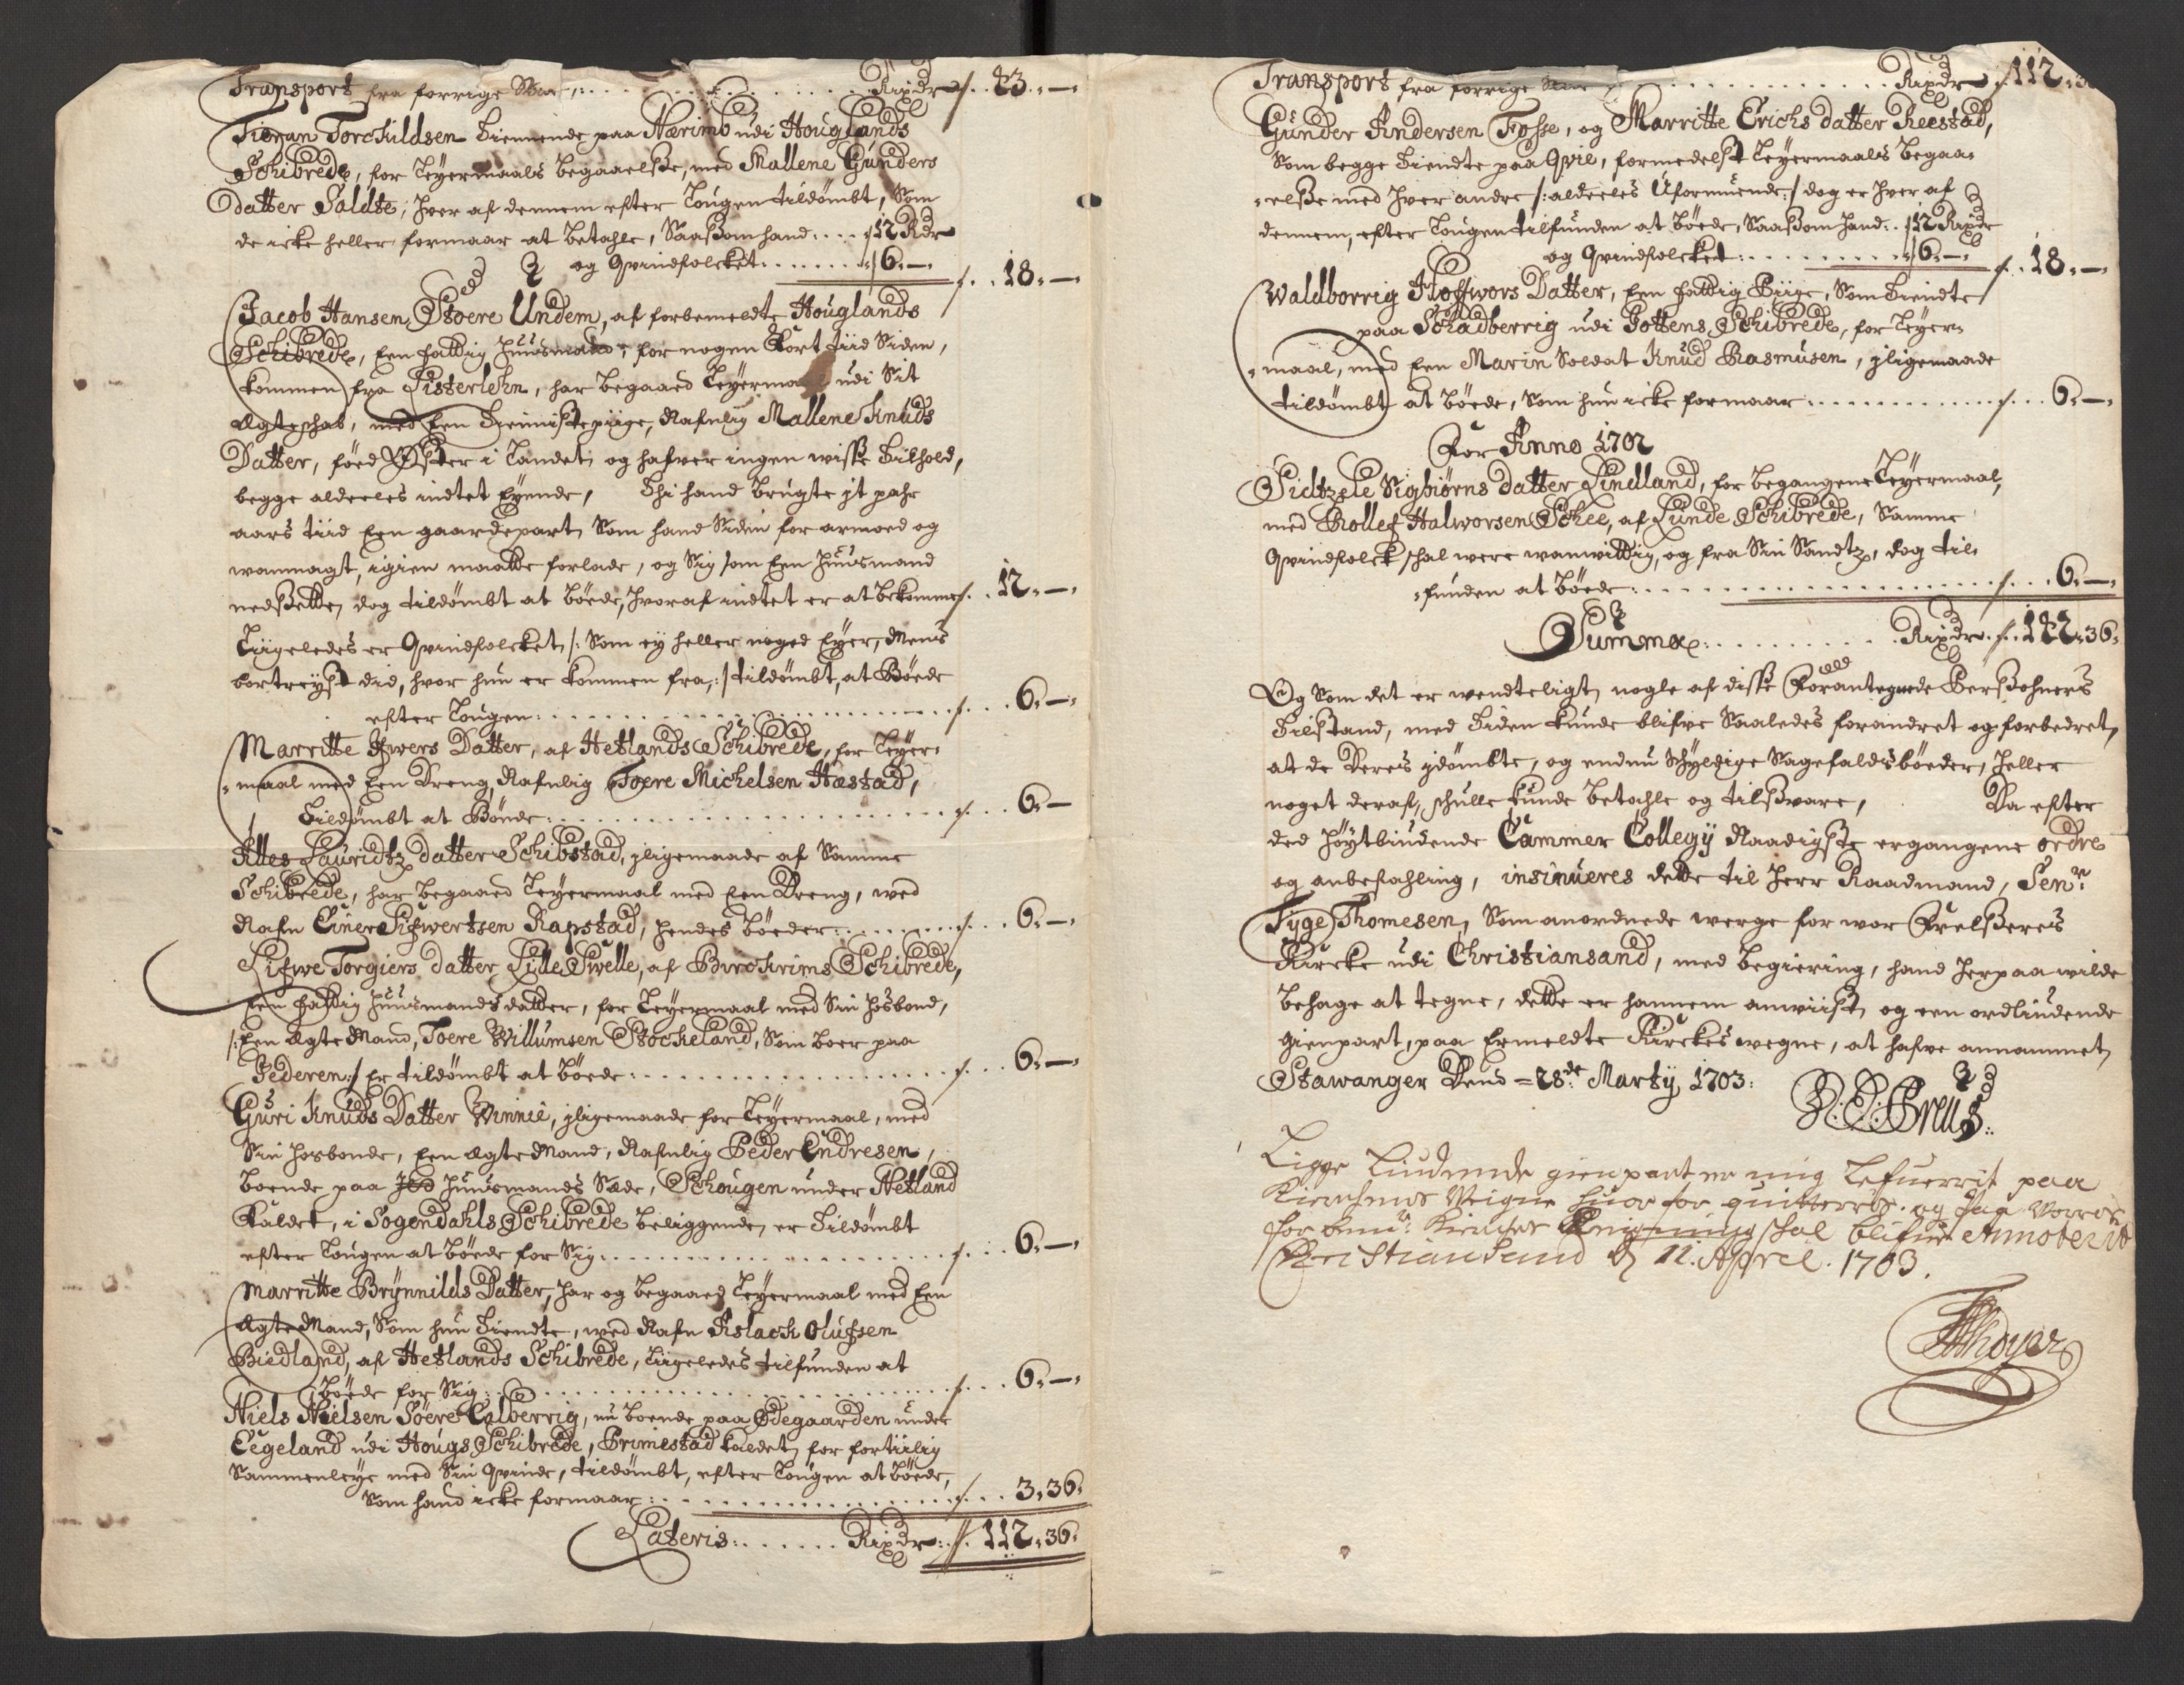 Transport fra forrige Siide: . . . . . . . Rixdr /. 43.-
Tieran Torchildsen tienende paa Nærimb udi Houglands
Schibrede, for Leyermaals begaaelße, med Mallene Gunders
datter Saldte, hver af dennem efter Lougen tildømbt, Som
de icke heller formaar at betahle, Saaßom hand . . . /12 Rdr
og Qvindfolcket . . . . . . . /6.- /. . 18.-
Jacob Hansen, Stoere Undem, af forbemeldte Houglands
Schibrede, een fattig Huusmand, for nogen kort tiid Siden,
kommen fra Listerlehn, har begaaed Leyermaal udi Sit
Ægteschab, med een tienniste piige, Nafnlig Mallene Knuds
Datter, föed Øster i Landet, og hafver ingen wisße tilhold,
begge aldeeles indtet Eyende, thi hand brugte it pahr
aars tiid Een gaardepart, Som hand Siden for armoed og
wanmagt, igien maatte forlade, og Sig som Een Huusmand
nedßette, dog tildømbt at böede, hvoraf indtet er at bekomme /. . 12.-
Liigeledes er Qvindfolcket /: Som ey heller noged Eyer, Mens
bortreyst did, hvor hun er kommen fra, :/ tildømbt, at Böede
efter Lougen: . . . . . . . . . . /. . . 6.-
Marritte Ifwers Datter, af Hetlands Schibrede, for Leyer-
-maal med Een Dreng, Nafnlig Toere Michelsen Hæstad,
tildømbt at Bönde: . . . . . . . . . . /. . . 6.-
Alles Lauridtz datter Schibstad, jligemaade af Samme
Schibrede, har begaaed Leyermaal med Een Dreng, wed
Nafn Einer Sifwertsen Rapstad, hendes böeder: . . . . /. . . 6.-
Lifwe Torgiers datter Lille Swelle, af Birchrims Schibrede,
Een fattig Huusmands datter, for Leyermaal med Sin Hosbond,
/: Een Ægte Mand, Toere Willumsen Stockeland, Som boer paa
Jederen :/ Er tildømbt at böede: . . . . . . . . . . /. . . 6.-
Guri Knuds Datter Winnie, jligemaade for Leyermaal, med
Sin Hosbonde, Een Ægte Mand, Nafnlig Peder Endresen,
boende paa Huusmands Sæde, Schougen under Netland
kaldet, i Sogendahls Schibrede beliggende, er tildømbt
efter Lougen at böede for Sig: . . . . . . . . . . /. . . 6.-
Marritte Brynnilds Datter, har og begaaed Leyermaal med Een
Ægte Mand, Som hun tiendte, wed Nafn Aslach Olufsen
Birdland, af Hetlands Schibrede, liigeledes tilfunden at
böede for Sig: . . . . . . . . . . /. . . 6.-
Niels Nielsen Söere Calberrig, nu boende paa Ødegaarden under
Eegeland udi Hougs Schibrede, Primestad kaldet, for fortiilig
Sammenleye med Sin Qvinde, tildømbt, efter Lougen at böede,
Som hand icke formaar: . . . . . . . . . . /. . . 3.36.
Lateris: . . . . . . Rixdr: /. 112.36.
Transport fra forrige Siide . . . . . . . Rixdr /. 112.36
Gunder Andersen Fosse, og Marritte Erichs datter Reestad,
Som begge tiendte paa Qvie, formedelst Leyermaals begaa-
-elße med hver andre /: aldeeles Uformuende :/ dog er hver af
dennem, efter Lougen tilfunden at böede, Saaßom hand: . /12 Rixdr
og Qvindfolcket: . . . . . . . . /6.- /. . 18.-
Waldborrig Hoffwors Datter, Een fattig Piige, Som tiendte
paa Schadberrig udi Gottens Schibrede, for Leyer-
-maal, med Een Marin Soldat Knud Rasmusen, jligemaade
tildømbt at böede, Som hun icke formaar: . . . . . . . /. . . 6.-
For Anno 1702
Sidtzele Sigbiørns datter Lindland, for begangene Leyermaal,
med Rollef Halworsen Schee, af Lunde Schibrede, Samme
Qvindfolck schal were wanvittig, og fra Sin Sandtz, dog til-
-funden at böede: . . . . . . . . . . /. . . 6.-
Summa: . . . . . . . Rixdr. /. 142.36.
Og Som det er wendteligt, nogle af disße Forantegnede Perßohners
Tilstand, med tiden kunde blifve Saaledes forandret og forbedret,
at de deres idømbte, og endnu schyldige Sagefaldsböeder, heller
noget deraf, schulle kunde betahle og tilßvare, Da efter
ded höytbiudende Cammer Collegy Naadigste ergangene ordre
og anbefahling, insinueres dette til Herr Raadmand, Senr:
Tyge Thomesen, Som anordnede werge for wor Frelßeres
Kircke udi Christiansand, med begiering, hand herpaa wilde
behage at tegne, dette er hannem anviist, og een ordliudende
gienpart, paa Ermeldte Kirckes wegne, at hafve annammet,
Stawanger Dend = 28de Marty 1703:
Liige Liudende gienpart er mig lefuerrit paa
Kierchens Veigne huor for quitteris. og saa
for benr: Kierches schal blifue Annoterit
Christiansand d 11. Aprel. 1703.
TThoyer